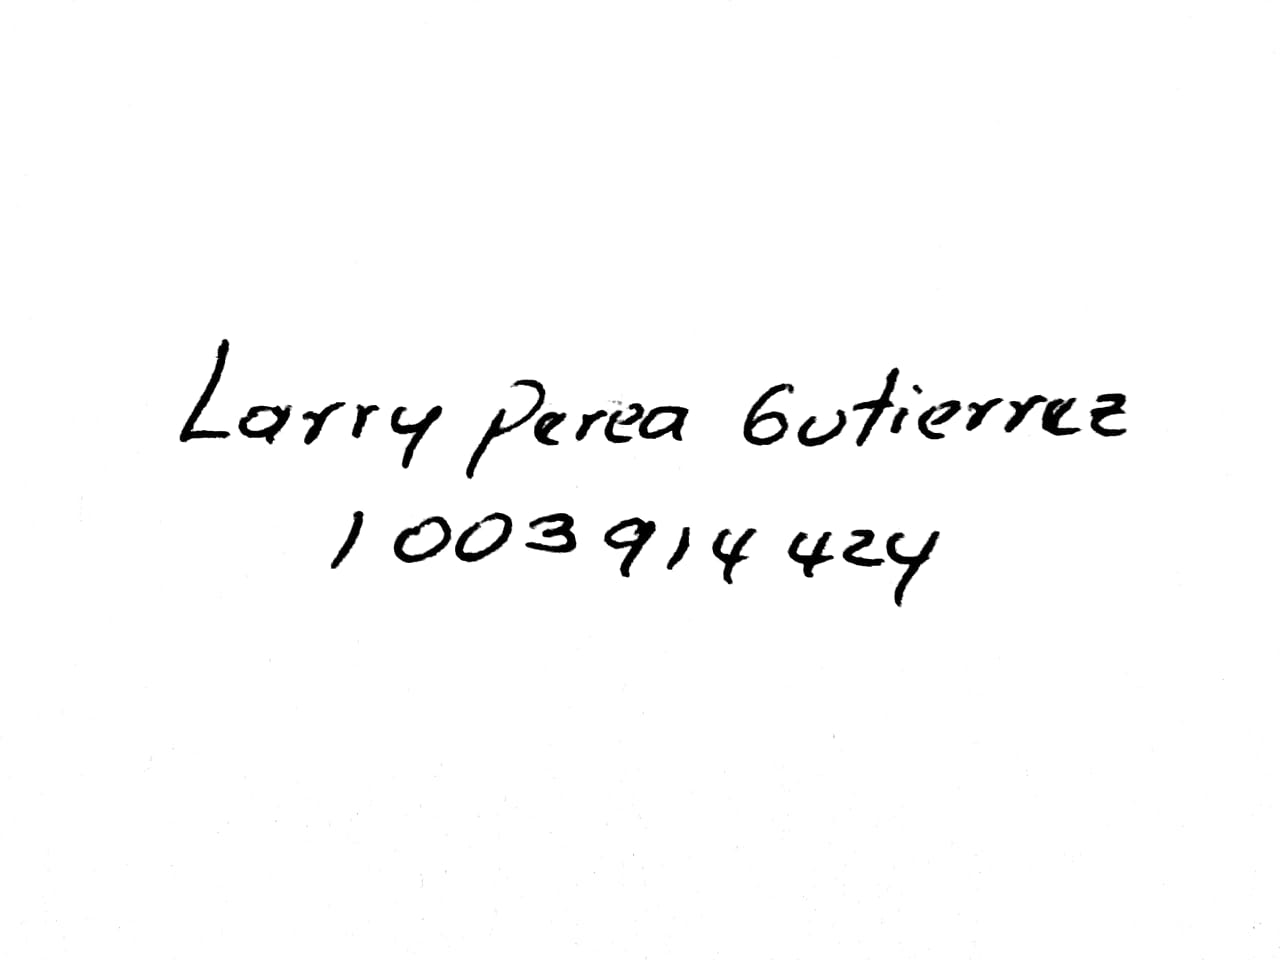 Larry Perea Gutierrez
1003914424